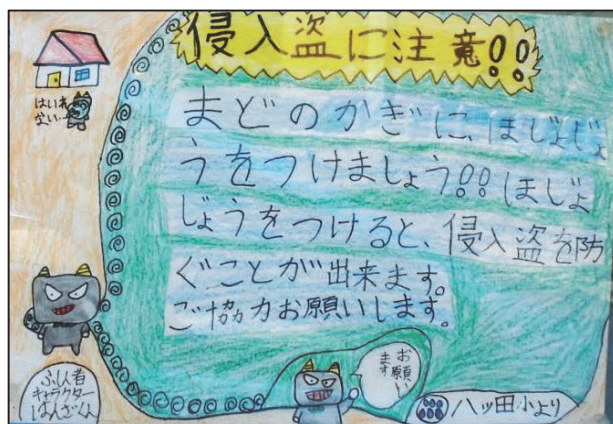 侵入盗に注意!!
はいれ
ない…
まどのかぎに、ほじょじょ
うをつけましょう!!ほじょ
じょうをつけると、侵入盗を防
ぐことが出来ます。
ご協力お願いします。
お願い
ます
ふしん者
キャラクター
はんざくん
八ッ田小より